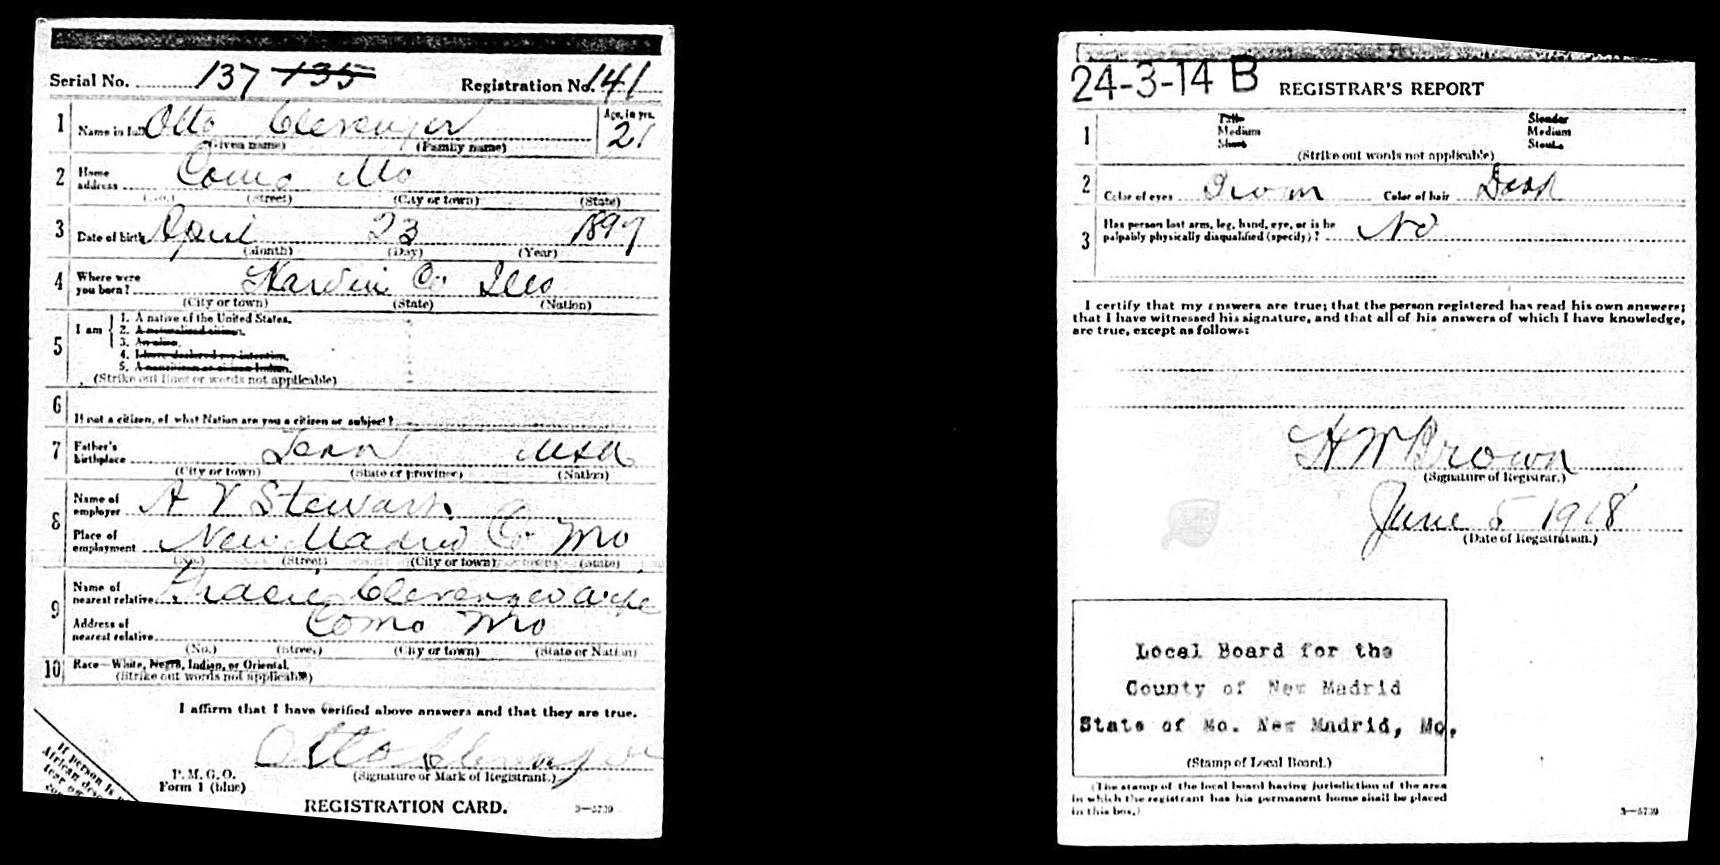 Serial No. 137 135 Registration No. 141
1 Name in full Otto Clevenger Age, in yrs. 21
(Given name) (Family name)
2 Home address Como Mo
(No.) (Street) (City or town) (State)
3 Date of birth April 23 1897
(Month) (Day) (Year)
4 Where were you born? Hardin Co Ills
(City or town) (State) (Nation)
5 I am
1. A native of the United States.
2. A naturalized citizen.
3. An alien.
4. I have declared my intention.
5. A noncitizen or citizen Indian.
(Strike out lines or words not applicable)
6
If not a citizen, of what Nation are you a citizen or subject?
7 Father's birthplace Tenn USA
(City or town) (State or province) (Nation)
8 Name of employer A V Stewart.
Place of employment New Madrid Co Mo
(No.) (Street) (City or town) (State)
9 Name of nearest relative Gracie Clevenger wife
Address of nearest relative Como Mo
(No.) (Street) (City or town) (State or Nation)
10 Race—White, Negro, Indian, or Oriental.
(Strike out words not applicable)
I affirm that I have verified above answers and that they are true.
Otto Clevenger
(Signature or Mark of Registrant.)
P. M. G. O.
Form 1 (blue)
REGISTRATION CARD. 3—5739
If person is
African
tear
24-3-14 B REGISTRAR'S REPORT
1 Tall Slender
Medium Medium
Short Stout
(Strike out words not applicable)
2 Color of eyes Brown Color of hair Dark
3 Has person lost arm, leg, hand, eye, or is he
palpably physically disqualified (specify)? No
I certify that my answers are true; that the person registered has read his own answers;
that I have witnessed his signature, and that all of his answers of which I have knowledge,
are true, except as follows:
H W Brown
(Signature of Registrar.)
June 5 1918
(Date of Registration.)
Local Board for the
County of New Madrid
State of Mo. New Madrid, Mo.
(Stamp of Local Board.)
(The stamp of the local board having jurisdiction of the area
in which the registrant has his permanent home shall be placed
in this box.)
3—5739